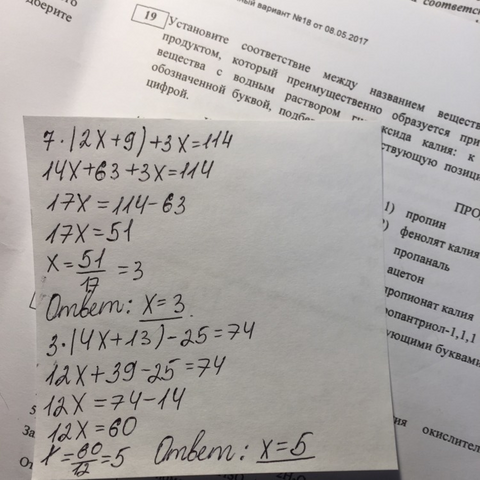 оберите
соответс
ный вариант №18 от 08.05.2017
19 Установите соответствие между названием вещества
продуктом, который преимущественно образуется при
вещества с водным раствором ксида калия: к
обозначенной буквой, подбе ствующую позици
цифрой.
7·(2x+9)+3x=114
14x+63+3x=114
17x=114-63
17x=51
x=51/17=3
Ответ: x=3.
3·(4x+13)-25=74
12x+39-25=74
12x=74-14
12x=60
x=60/12=5 Ответ: x=5
ПРО
1) пропин
2) фенолят калия
пропаналь
ацетон
пропионат калия
ропантриол-1,1,1
ующими буквами
5
За
ия окислител
От